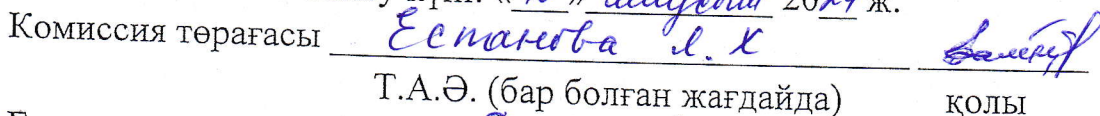 20 ж.
Комиссия төрағасы Естанова Л. Х
Т.А.Ә. (бар болған жағдайда) қолы